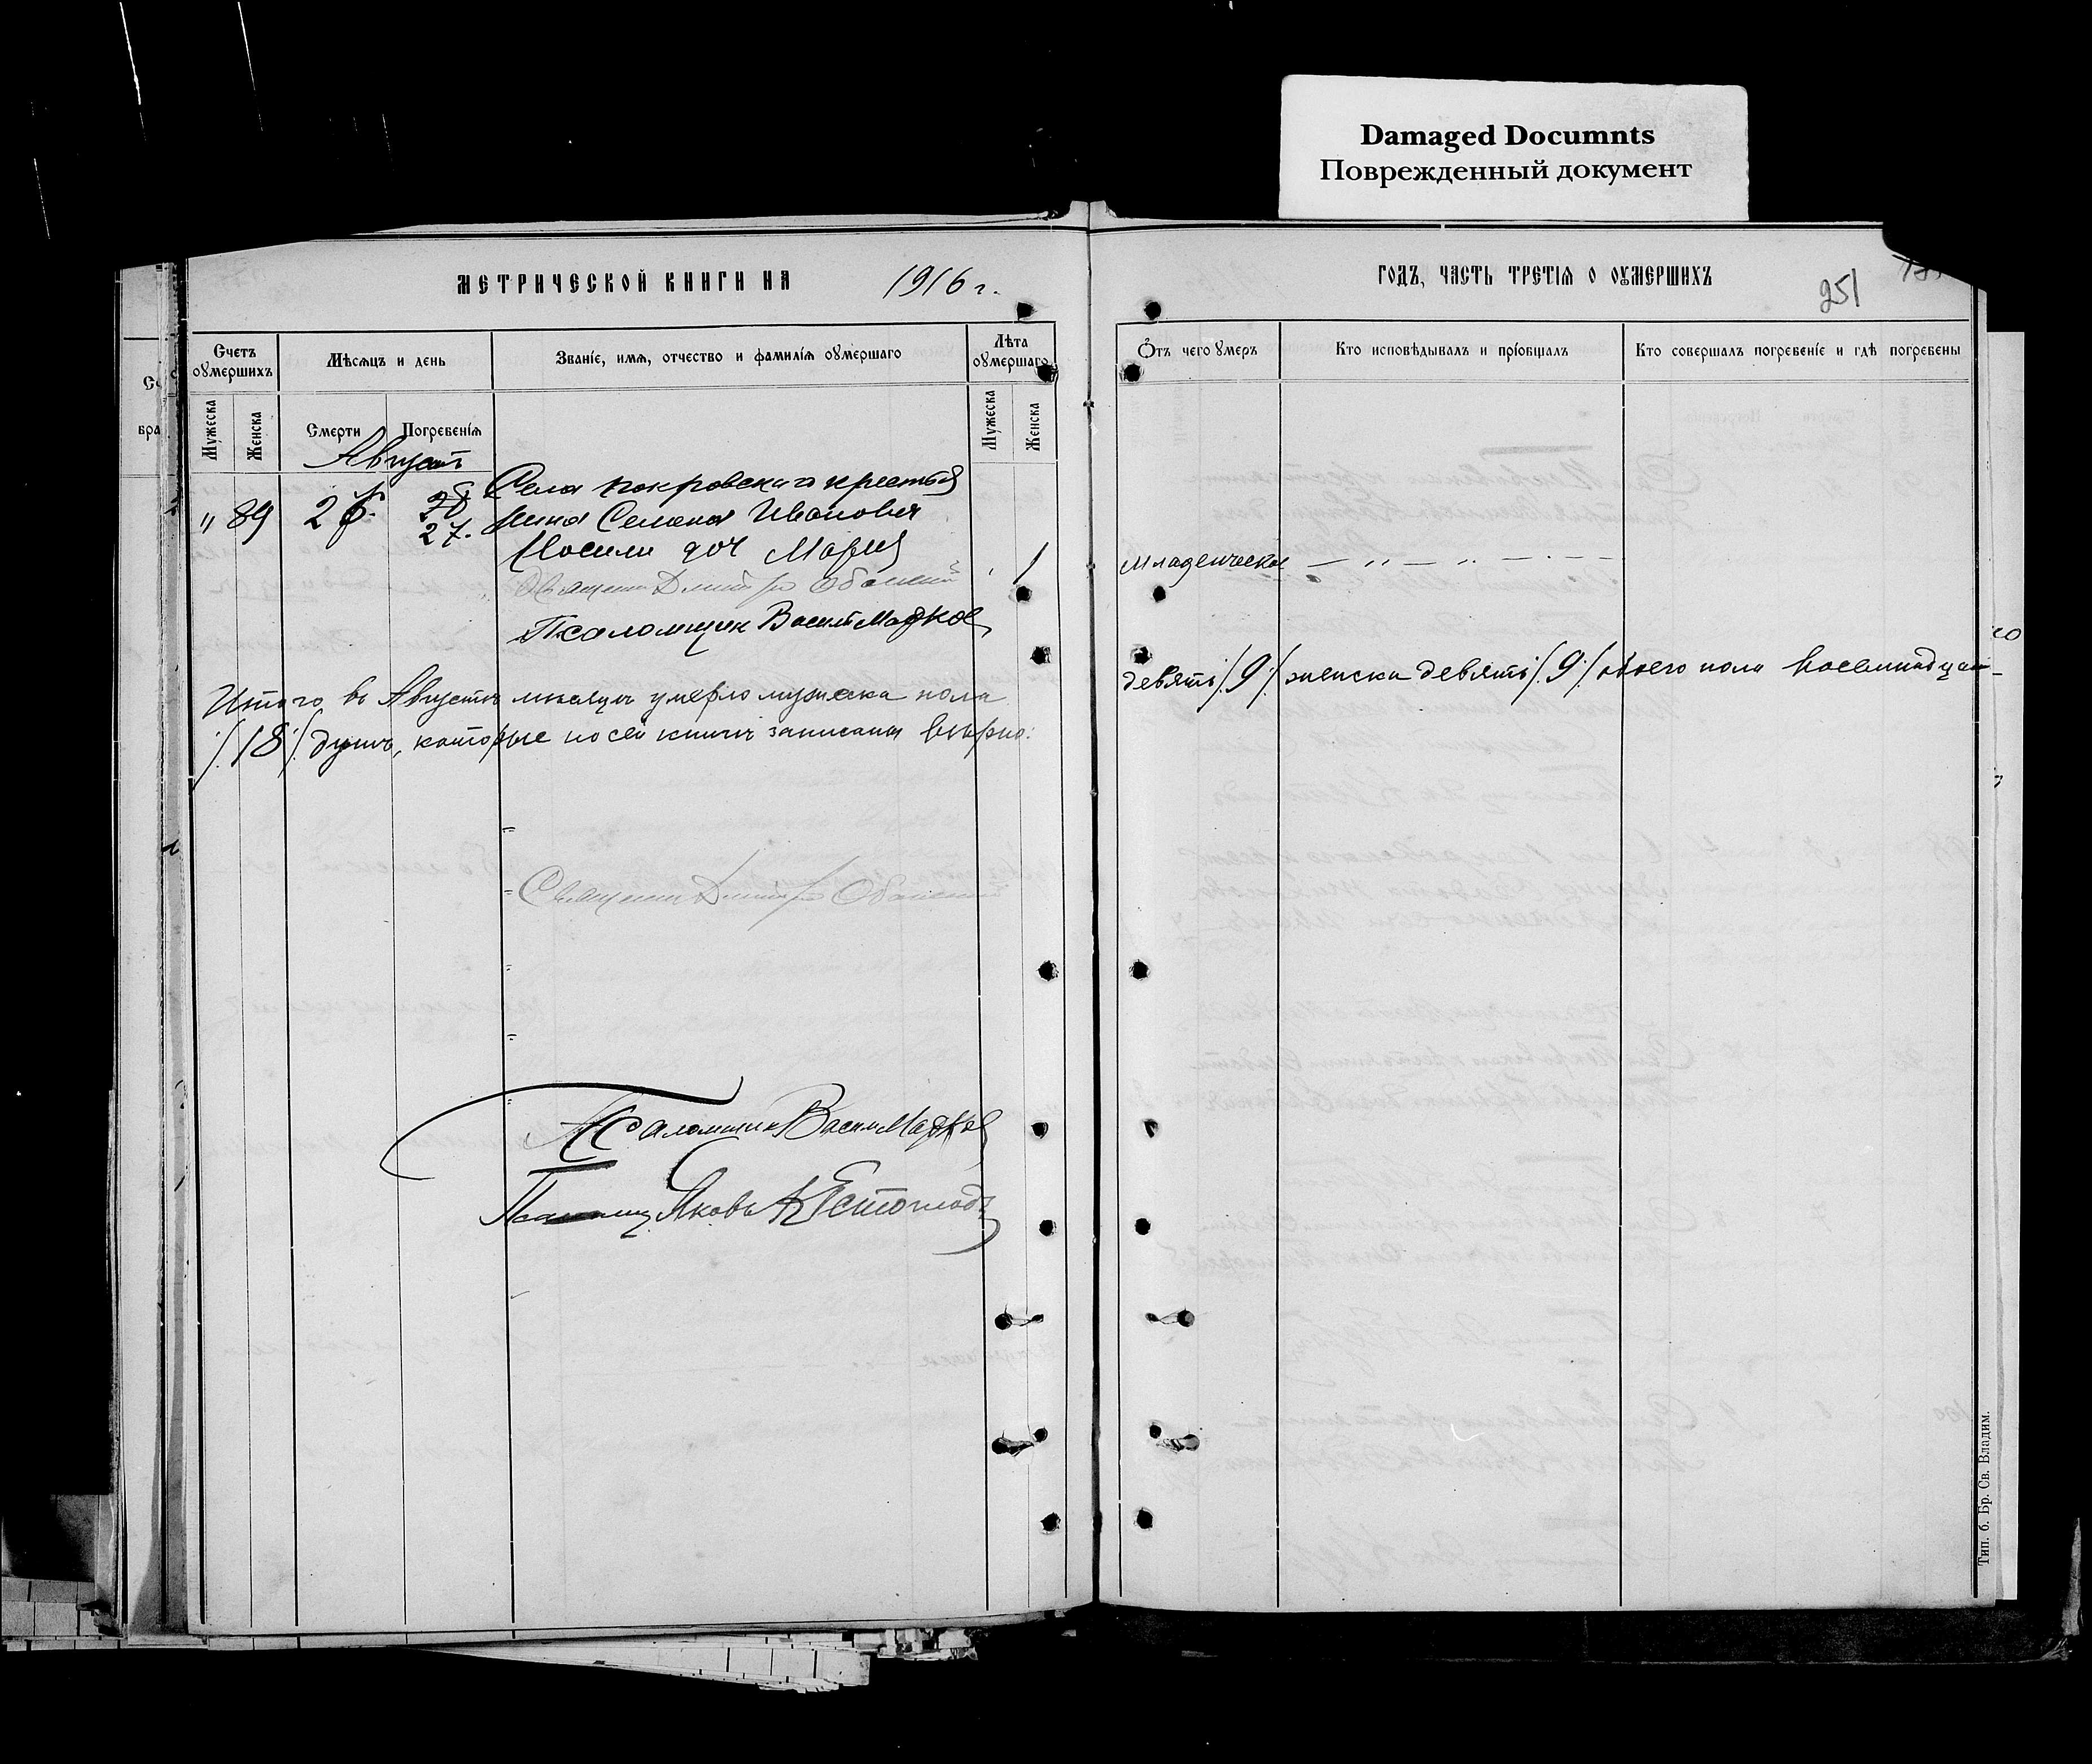 Damaged Documnts
Поврежденный документ
МЕТРИЧЕСКОЙ КНИГИ НА 1916 г.
ГОДЪ, ЧАСТЬ ТРЕТІЯ О ОУМЕРШИХЪ
251
Счетъ оумершихъ
Мѣсяцъ и день
Званіе, имя, отчество и фамилія оумершаго
Лѣта оумершаго
Отъ чего умеръ
Кто исповѣдывалъ и пріобщалъ
Кто совершалъ погребеніе и гдѣ погребены
Мужеска
Женска
Смерти
Погребенія
Мужеска
Женска
Августъ
Села Покровскаго крестья
" 89
27.
нина Семена Иванович
Носили доч Марія
1
младенческое — „ — „ — . — —
Священ Дмитр
Псаломщик Васил Марков
Итого въ Августѣ мѣсяцѣ умерло мужеска пола
девять /9/ женска девять /9/ обоего пола восемнадцат
/18/ душъ, которые по сей книгѣ записаны вѣрно:
Священ Дмитр
Псаломщик Васил Марков
Псаломщ Яковъ
Тип. б. Бр. Св. Владим.